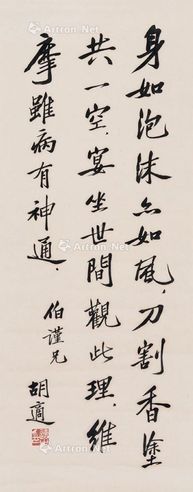 身如泡沫亦如風.刀割香塗
共一空.宴坐世間觀此理.維
摩雖病有神通.
伯謹兄
胡適
Artron.Net
Artron.Net
Artron.Net